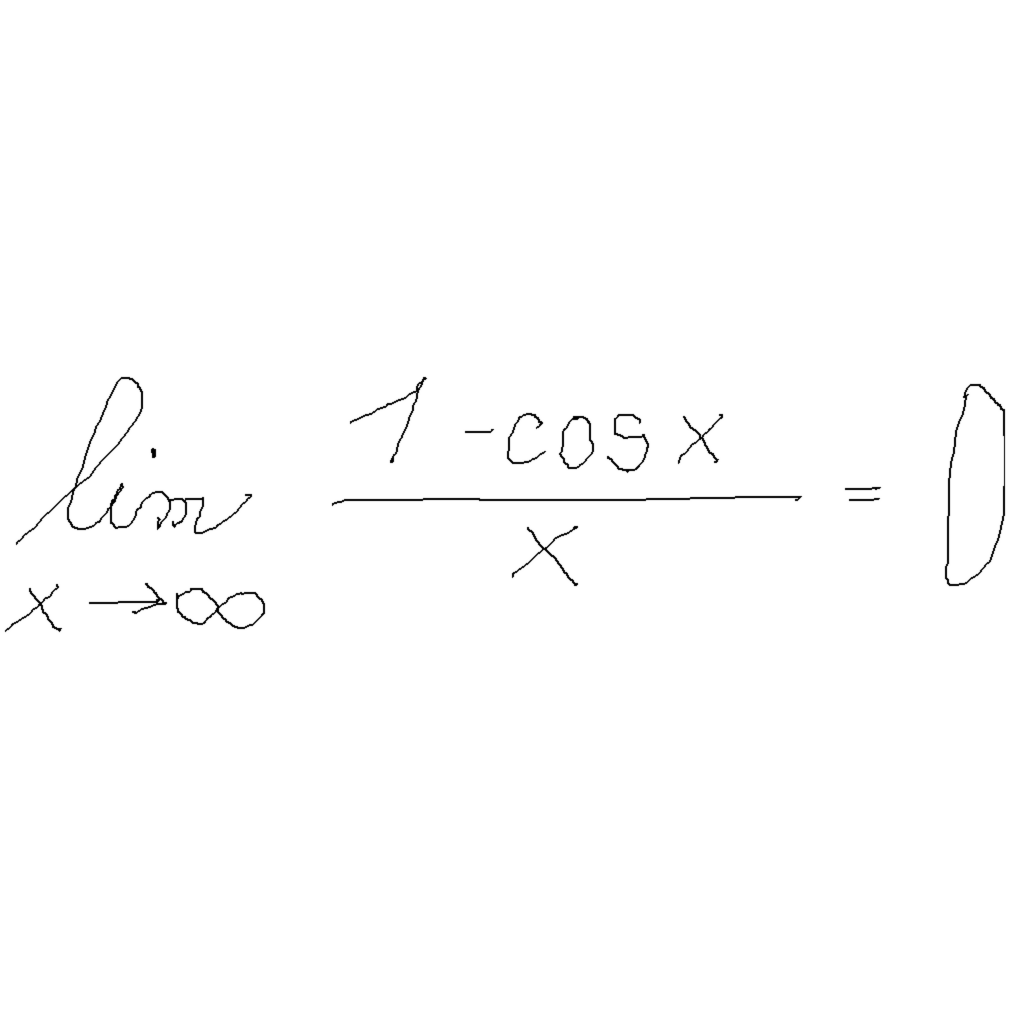 lim 1 - cos x / x = 0
x → ∞